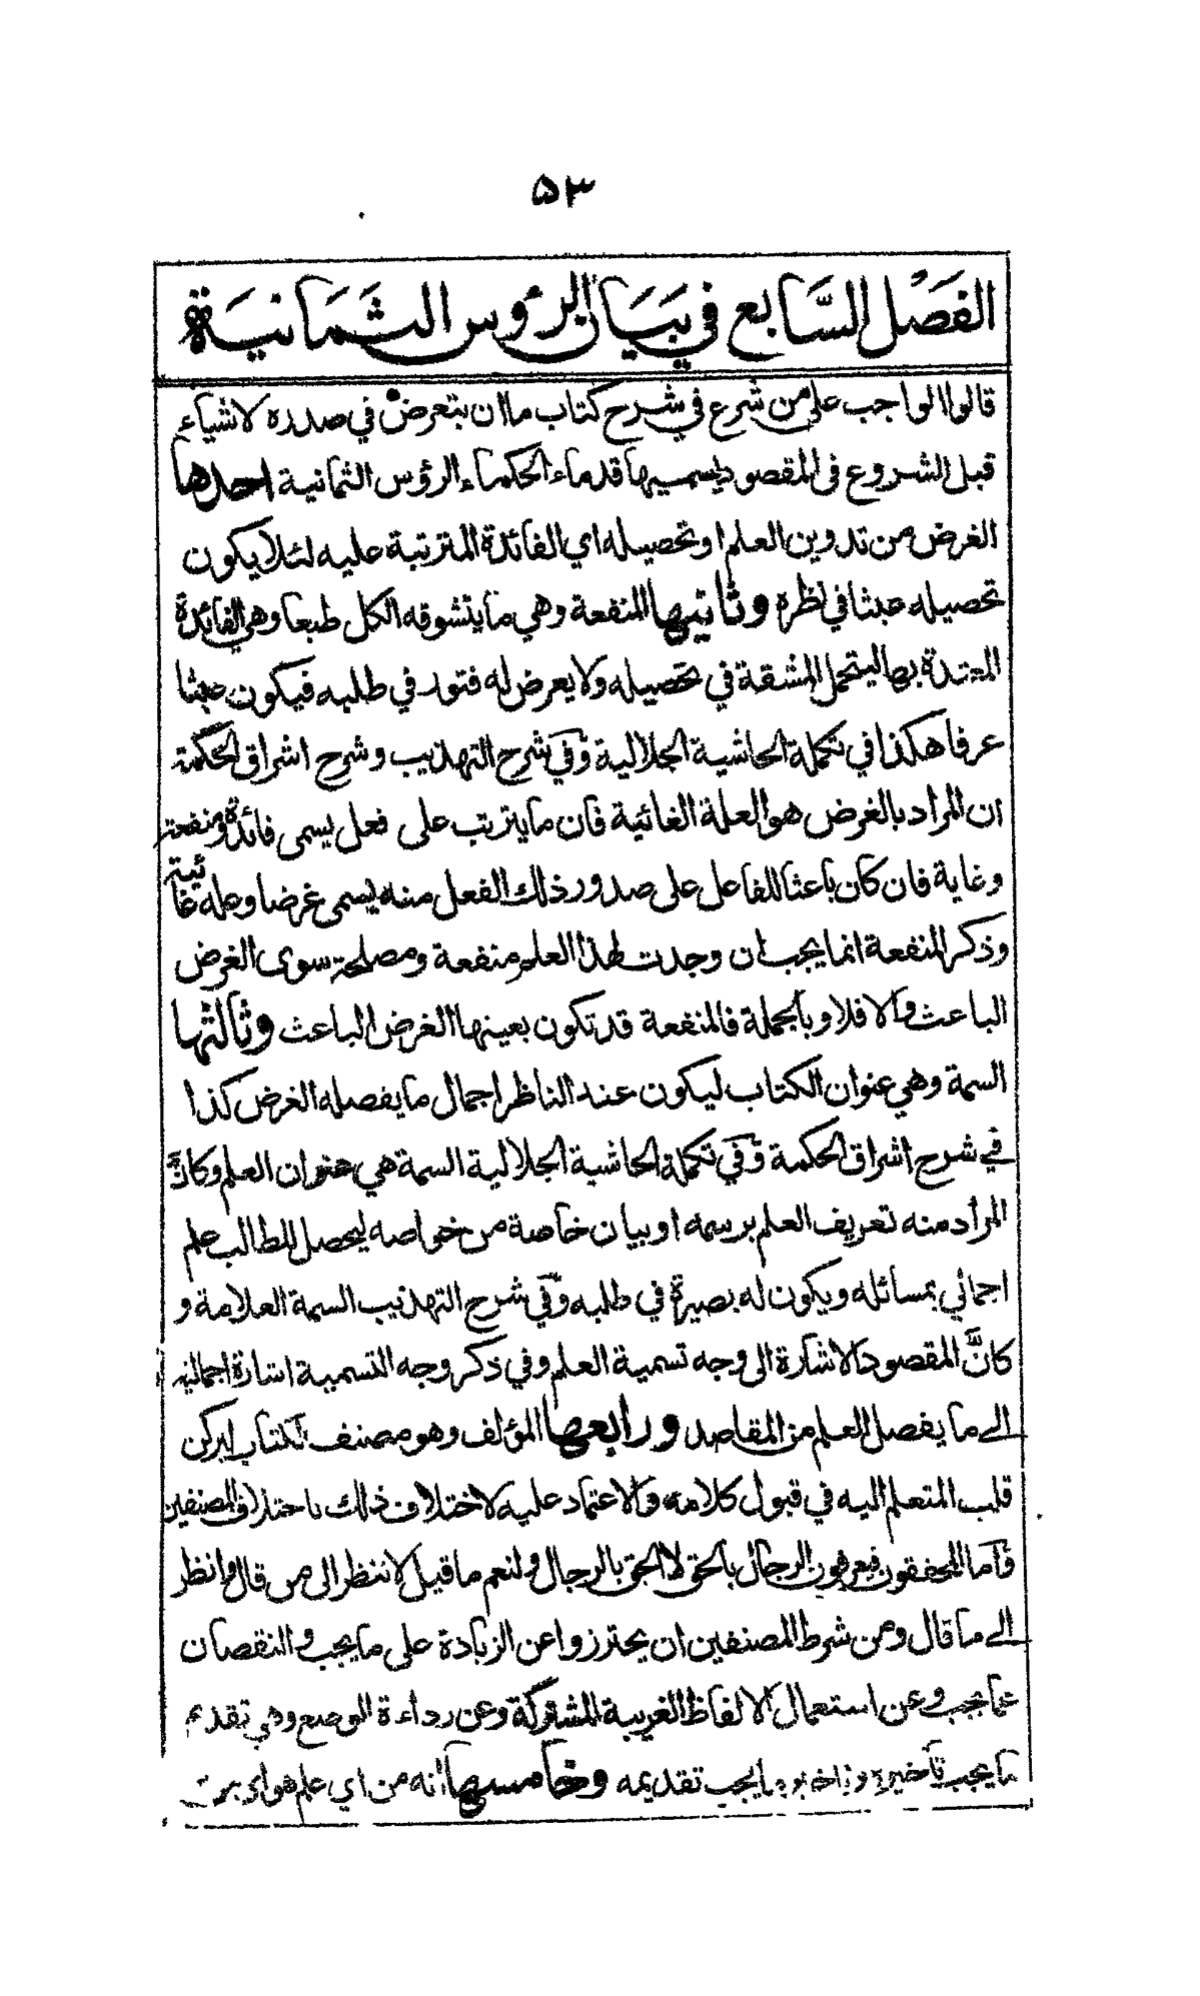 ۵۳
الفَصْل السَّابع في بَيَان الرؤس الثَّمَانيَة
قالوا الواجب على من شرع في شرح كتاب ما ان يتعرض في صدره لاشياء
قبل الشروع في المقصود يسميها قدماء الحكماء الرؤس الثمانية احدها
الغرض من تدوين العلم او تحصيله اي الفائدة المترتبة عليه لئلا يكون
تحصيله عبثا في نظره وثانيها المنفعة وهي ما يتشوقه الكل طبعا وهي الفائدة
المعتدة بها ليتحمل المشقة في تحصيله ولا يعرض له فتور في طلبه فيكون عبثا
عرفا هكذا في تكملة الحاشية الجلالية وفي شرح التهذيب وشرح اشراق الحكمة
ان المراد بالغرض هو العلة الغائية فان ما يترتب على فعل يسمى فائدة ومنفعة
وغاية فان كان باعثا للفاعل على صدور ذلك الفعل منه يسمى غرضا وعلة غائية
وذكر المنفعة انما يجب ان وجدت لهذا العلم منفعة ومصلحة سوى الغرض
الباعث والا فلا وبالجملة فالمنفعة قد تكون بعينها الغرض الباعث وثالثها
السمة وهي عنوان الكتاب ليكون عند الناظر اجمال ما يفصله الغرض كذا
في شرح اشراق الحكمة وفي تكملة الحاشية الجلالية السمة هي عنوان العلم وكانَّ
المراد منه تعريف العلم برسمه او بيان خاصة من خواصه ليحصل للطالب علم
اجمالي بمسائله ويكون له بصيرة في طلبه وفي شرح التهذيب السمة العلامة و
كانَّ المقصود الاشارة الى وجه تسمية العلم وفي ذكر وجه التسمية اشارة اجمالية
الى ما يفصل العلم من المقاصد ورابعها المؤلف وهو مصنف الكتاب ليركن
قلب المتعلم اليه في قبول كلامه والاعتماد عليه لاختلاف ذلك باختلاف المصنفين
واما المحققون فيعرفون الرجال بالحق لا الحق بالرجال ولنعم ما قيل لا تنظر الى من قال وانظر
الى ما قال ومن شرط المصنفين ان يحترزوا عن الزيادة على ما يجب والنقصان
عما يجب وعن استعمال الالفاظ الغريبة المشتركة وعن رداءة الوضع وهي تقديم
ما يجب تأخيره وتاخير ما يجب تقديمه وخامسها انه من اي علم هو اي